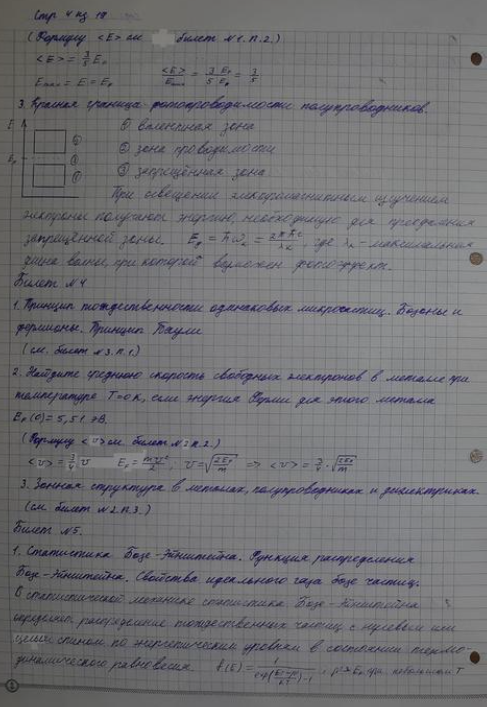 Стр 4 из 18
(Формулу <E> см билет №1.п.2.)
<E> = 3/5 E_F
E_max = E = E_F <E>/E_max = 3 E_F / 5 E_F = 3/5
3. Красная граница фотопроводимости полупроводников.
E
① валентная зона
② зона проводимости
E_F
③ запрещённая зона
При освещении электромагнитным излучением
электроны получают энергию, необходимую для преодоления
запрещённой зоны. E_g = ħω_к = 2πħc/λ_к где λ_к - максимальная
длина волны, при которой возможен фотоэффект.
Билет №4
1. Принцип тождественности одинаковых микрочастиц. Бозоны и
фермионы. Принцип Паули
(см. билет №3.п.1)
2. Найдите среднюю скорость свободных электронов в металле при
температуре T=0 К, если энергия Ферми для этого металла
E_F(0) = 5,51 эВ.
(Формулу <v> см. билет №2 п.2.)
<v> = 3/4 v E_F = mv²/2, v = √(2E_F/m) ⇒ <v> = 3/4 · √(2E_F/m)
3. Зонная структура в металлах, полупроводниках и диэлектриках.
(см. билет №2.п.3.)
Билет №5.
1. Статистика Бозе-Эйнштейна. Функция распределения
Бозе-Эйнштейна. Свойства идеального газа бозе частиц.
В статистической механике статистика Бозе-Эйнштейна
определяет распределение тождественных частиц с нулевым или
целым спином по энергетическим уровням в состоянии термо-
динамического равновесия. f(E) = 1/(exp((E-μ)/kT)-1), при небольшом T